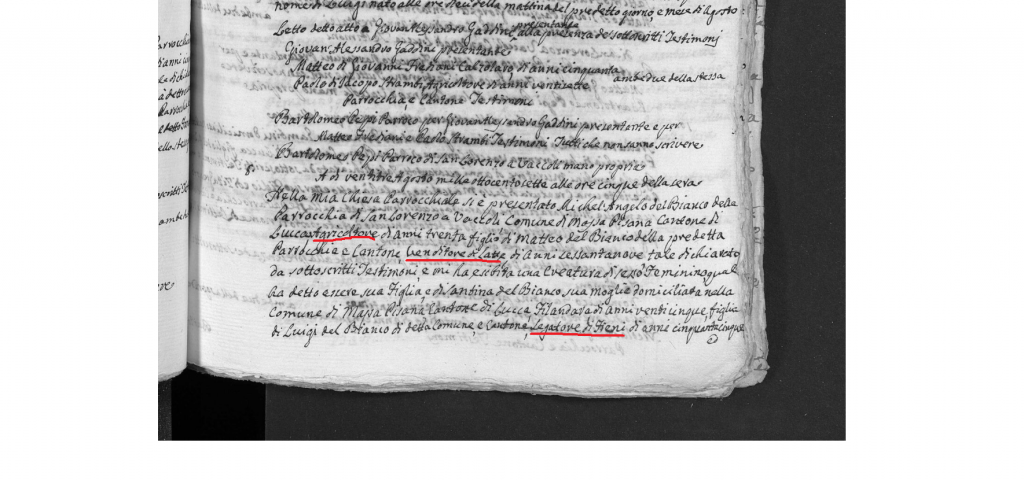 nome di Luigi nato alle ore dieci della mattina del predetto giorno, e mese di Agosto
Letto dell'atto a Giovan Alessandro Gaddini presentante alla presenza de sottoscritti Testimonj
Giovan Alessandro Gaddini presentante
Matteo di Giovanni Frediani Calzolaro di anni cinquanta
Paolo di Jacopo Strambi Agricoltore di anni ventisette
ambedue della stessa
Parrocchia, e Cantone Testimoni
Bartolomeo Pepi Parroco per Giovan Alessandro Gaddini presentante e per
Matteo Frediani e Paolo Strambi Testimoni Tutti che non sanno scrivere
Bartolomeo Pepi Parroco di San Lorenzo a Vaccoli mano propria
8.
A dì ventitre Agosto mille ottocento sette alle ore cinque della sera
Nella mia Chiesa Parrocchiale si è presentato Michel Angelo del Bianco della
Parrocchia di San Lorenzo a Vaccoli Comune di Massa Pisana Cantone di
Lucca Agricoltore di anni trenta figlio di Matteo del Bianco della predetta
Parrocchia e Cantone Venditore di Latte di anni sessantanove tale dichiarato
da sottoscritti Testimoni e mi ha esibita una Creatura di sesso Feminino quale
ha detto essere sua Figlia, e di Santina del Bianco sua moglie domiciliata nella
Comune di Massa Pisana Cantone di Lucca Filandara di anni venti cinque figlia
di Luigi del Bianco di detta Comune, e Cantone, Legatore di Fieni di anni cinquantacinque